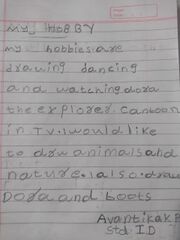 my HOBBY
my hobbies.are
drawing dancing
and watching dora
the explorer. Cantoon
in TV. I would like
to drw animals and
nature. I also draw
Dora and boots
Avantika K P
std I.D